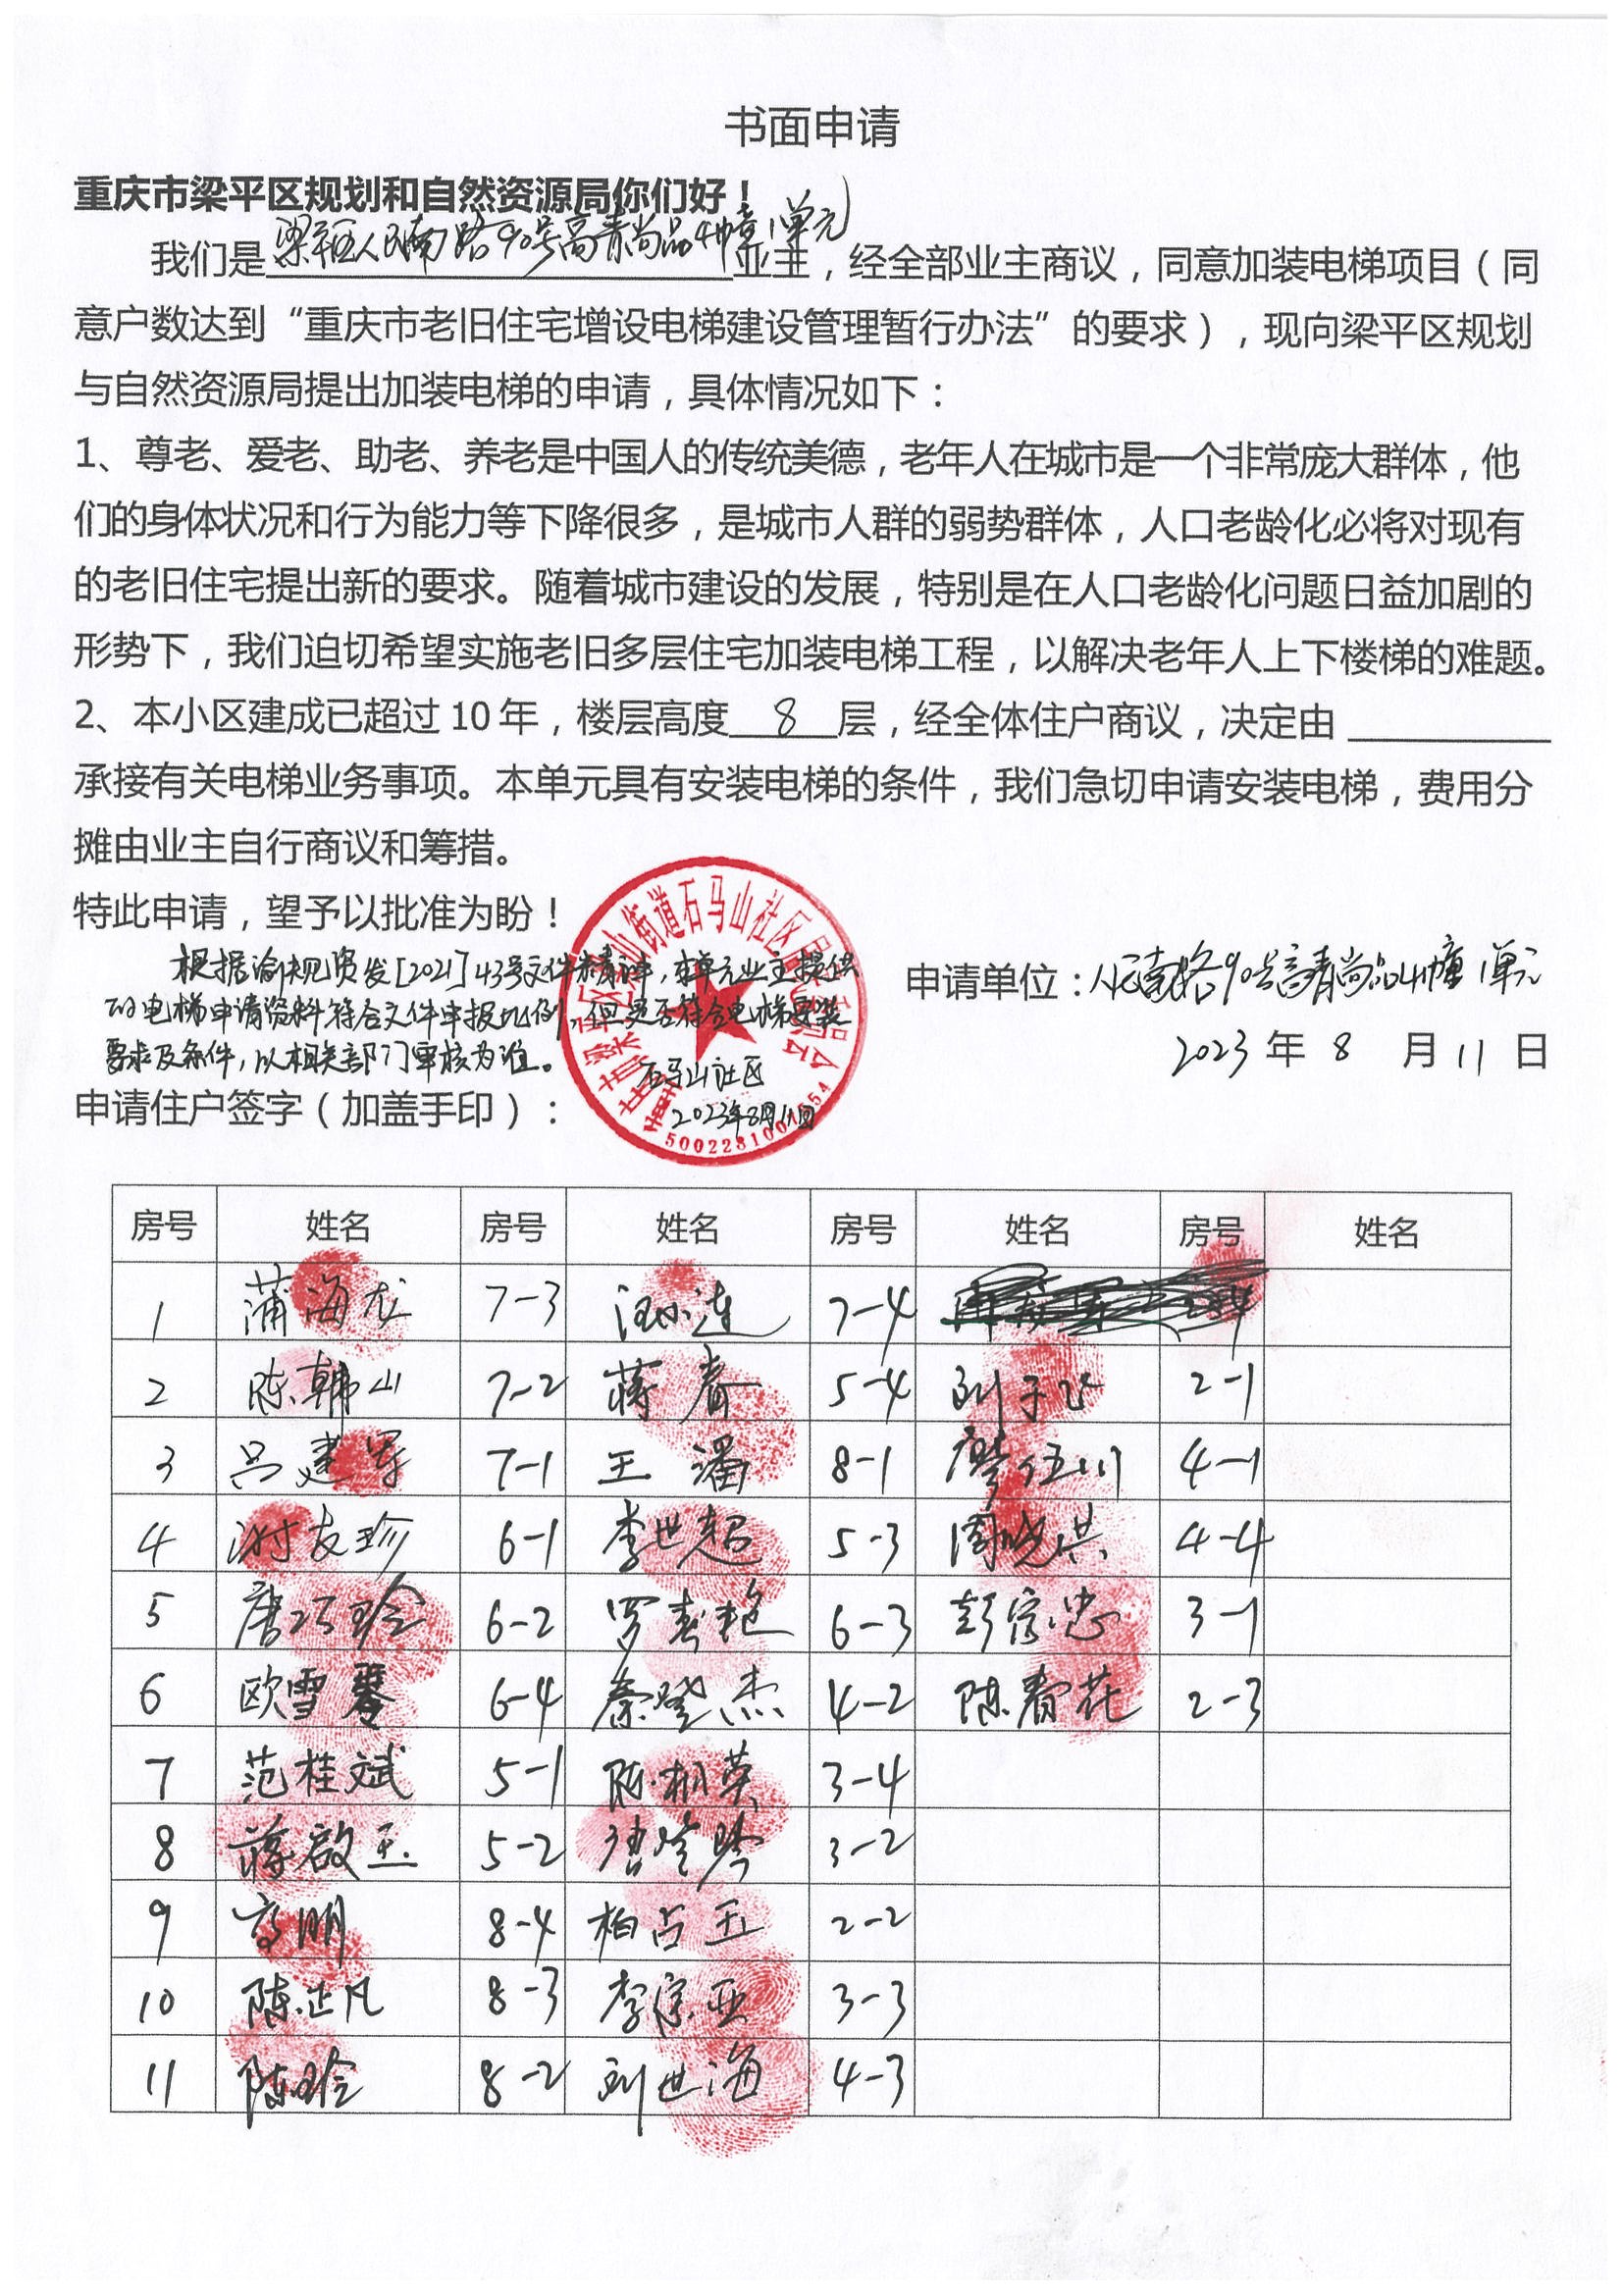 书面申请
重庆市梁平区规划和自然资源局你们好！
我们是梁平区人民南路90号高青尚品4幢1单元业主，经全部业主商议，同意加装电梯项目（同
意户数达到“重庆市老旧住宅增设电梯建设管理暂行办法”的要求），现向梁平区规划
与自然资源局提出加装电梯的申请，具体情况如下：
1、尊老、爱老、助老、养老是中国人的传统美德，老年人在城市是一个非常庞大群体，他
们的身体状况和行为能力等下降很多，是城市人群的弱势群体，人口老龄化必将对现有
的老旧住宅提出新的要求。随着城市建设的发展，特别是在人口老龄化问题日益加剧的
形势下，我们迫切希望实施老旧多层住宅加装电梯工程，以解决老年人上下楼梯的难题。
2、本小区建成已超过10年，楼层高度 8 层，经全体住户商议，决定由
承接有关电梯业务事项。本单元具有安装电梯的条件，我们急切申请安装电梯，费用分
摊由业主自行商议和筹措。
特此申请，望予以批准为盼！
根据渝规资发[2021]43号文件精神，本单元业主提供
的电梯申请资料符合文件申报比例，但是否符合电梯安装
要求及条件，以相关部门审核为准。
石马山社区
2023年8月11日
街道石马山社区
申请单位：人民南路90号高青尚品4幢1单元
2023年8月11日
申请住户签字（加盖手印）：
房号 姓名 房号 姓名 房号 姓名 房号 姓名
1 蒲海龙 7-3 汪小连 7-4
2 陈韩山 7-2 蒋春 5-4 刘于飞 2-1
3 吕建军 7-1 王潘 8-1 廖伍川 4-1
4 谢友珍 6-1 李世超 5-3 周晓洪 4-4
5 唐巧玲 6-2 罗春艳 6-3 彭宗忠 3-1
6 欧雪琴 6-4 秦登杰 4-2 陈春花 2-3
7 范桂斌 5-1 陈相英 3-4
8 蒋啟玉 5-2 唐莹琴 3-2
9 高明 8-4 柏占玉 2-2
10 陈正凡 8-3 李宗亚 3-3
11 陈玲 8-2 刘世海 4-3